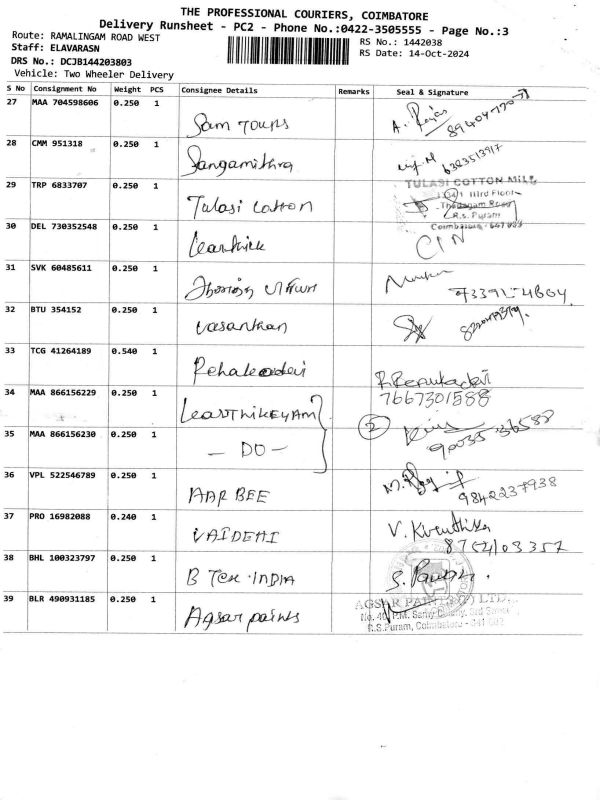 THE PROFESSIONAL COURIERS, COIMBATORE
Delivery Runsheet - PC2 - Phone No.:0422-3505555 - Page No.:3
Route: RAMALINGAM ROAD WEST
RS No.: 1442038
Staff: ELAVARASN
RS Date: 14-Oct-2024
DRS No.: DCJB144203803
Vehicle: Two Wheeler Delivery
S No Consignment No Weight PCS Consignee Details Remarks Seal & Signature
27 MAA 704598606 0.250 1
Sam Tours
28 CMM 951318 0.250 1
Sangamithra 6383513917
29 TRP 6833707 0.250 1
TULASI COTTON MILL
IIIrd Floor
Tulasi cotton Thadagam Road
R.S. Puram
30 DEL 730352548 0.250 1
Coimbatore
Karthick
31 SVK 60485611 0.250 1
பிரியா
32 BTU 354152 0.250 1
Vasanthan
33 TCG 41264189 0.540 1
R.Renukadevi
7667301588
34 MAA 866156229 0.250 1
KARTHIKEYAM
2
35 MAA 866156230 0.250 1
- DO -
36 VPL 522546789 0.250 1
AAR BEE 9842237938
37 PRO 16982088 0.240 1
VAIDEHI V. Kiruthika
38 BHL 100323797 0.250 1
B Tex INDIA
39 BLR 490931185 0.250 1
AGSAR PAINTS (P) LTD.,
Agsar paints No. 40, P.M. Samy Colony, 3rd Street
R.S.Puram, Coimbatore - 641 002